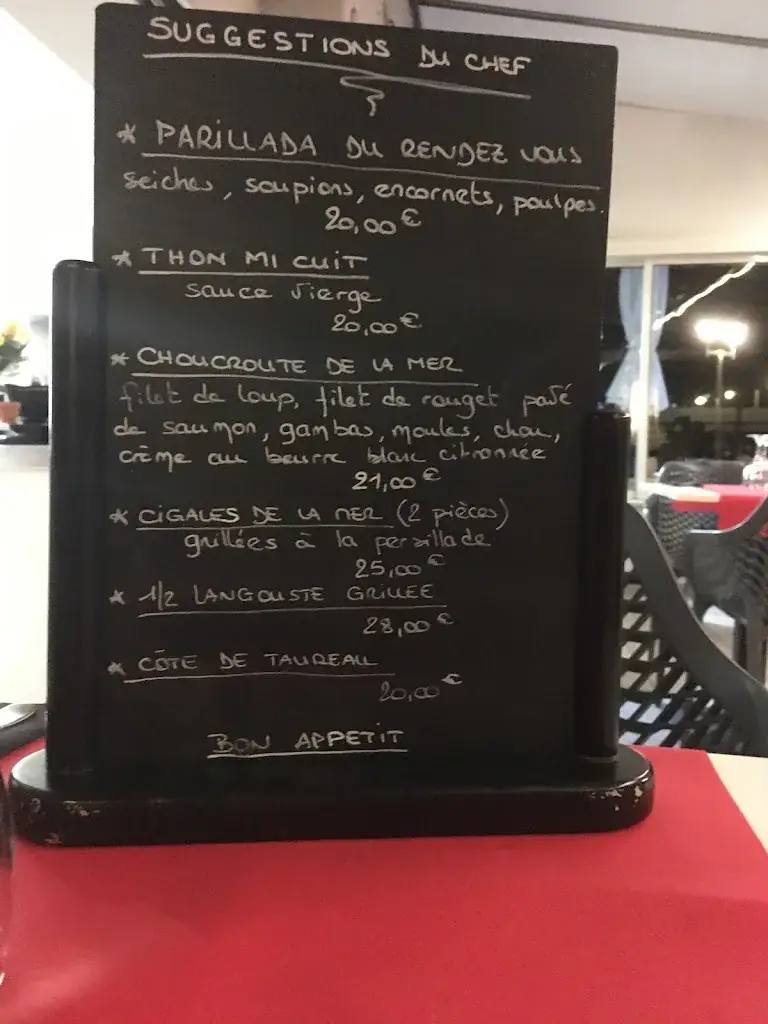 SUGGESTIONS DU CHEF
* PARILLADA DU RENDEZ VOUS
seiches, soupions, encornets, poulpes.
20,00 €
* THON MI CUIT
sauce vierge
20,00 €
* CHOUCROUTE DE LA MER
filet de loup, filet de rouget pavé
de saumon, gambas, moules, chou,
crème au beurre blanc citronnée
21,00 €
* CIGALES DE LA MER (2 pièces)
grillées à la persillade
25,00 €
* 1/2 LANGOUSTE GRILLEE
28,00 €
* CÔTE DE TAUREAU
20,00 €
BON APPETIT